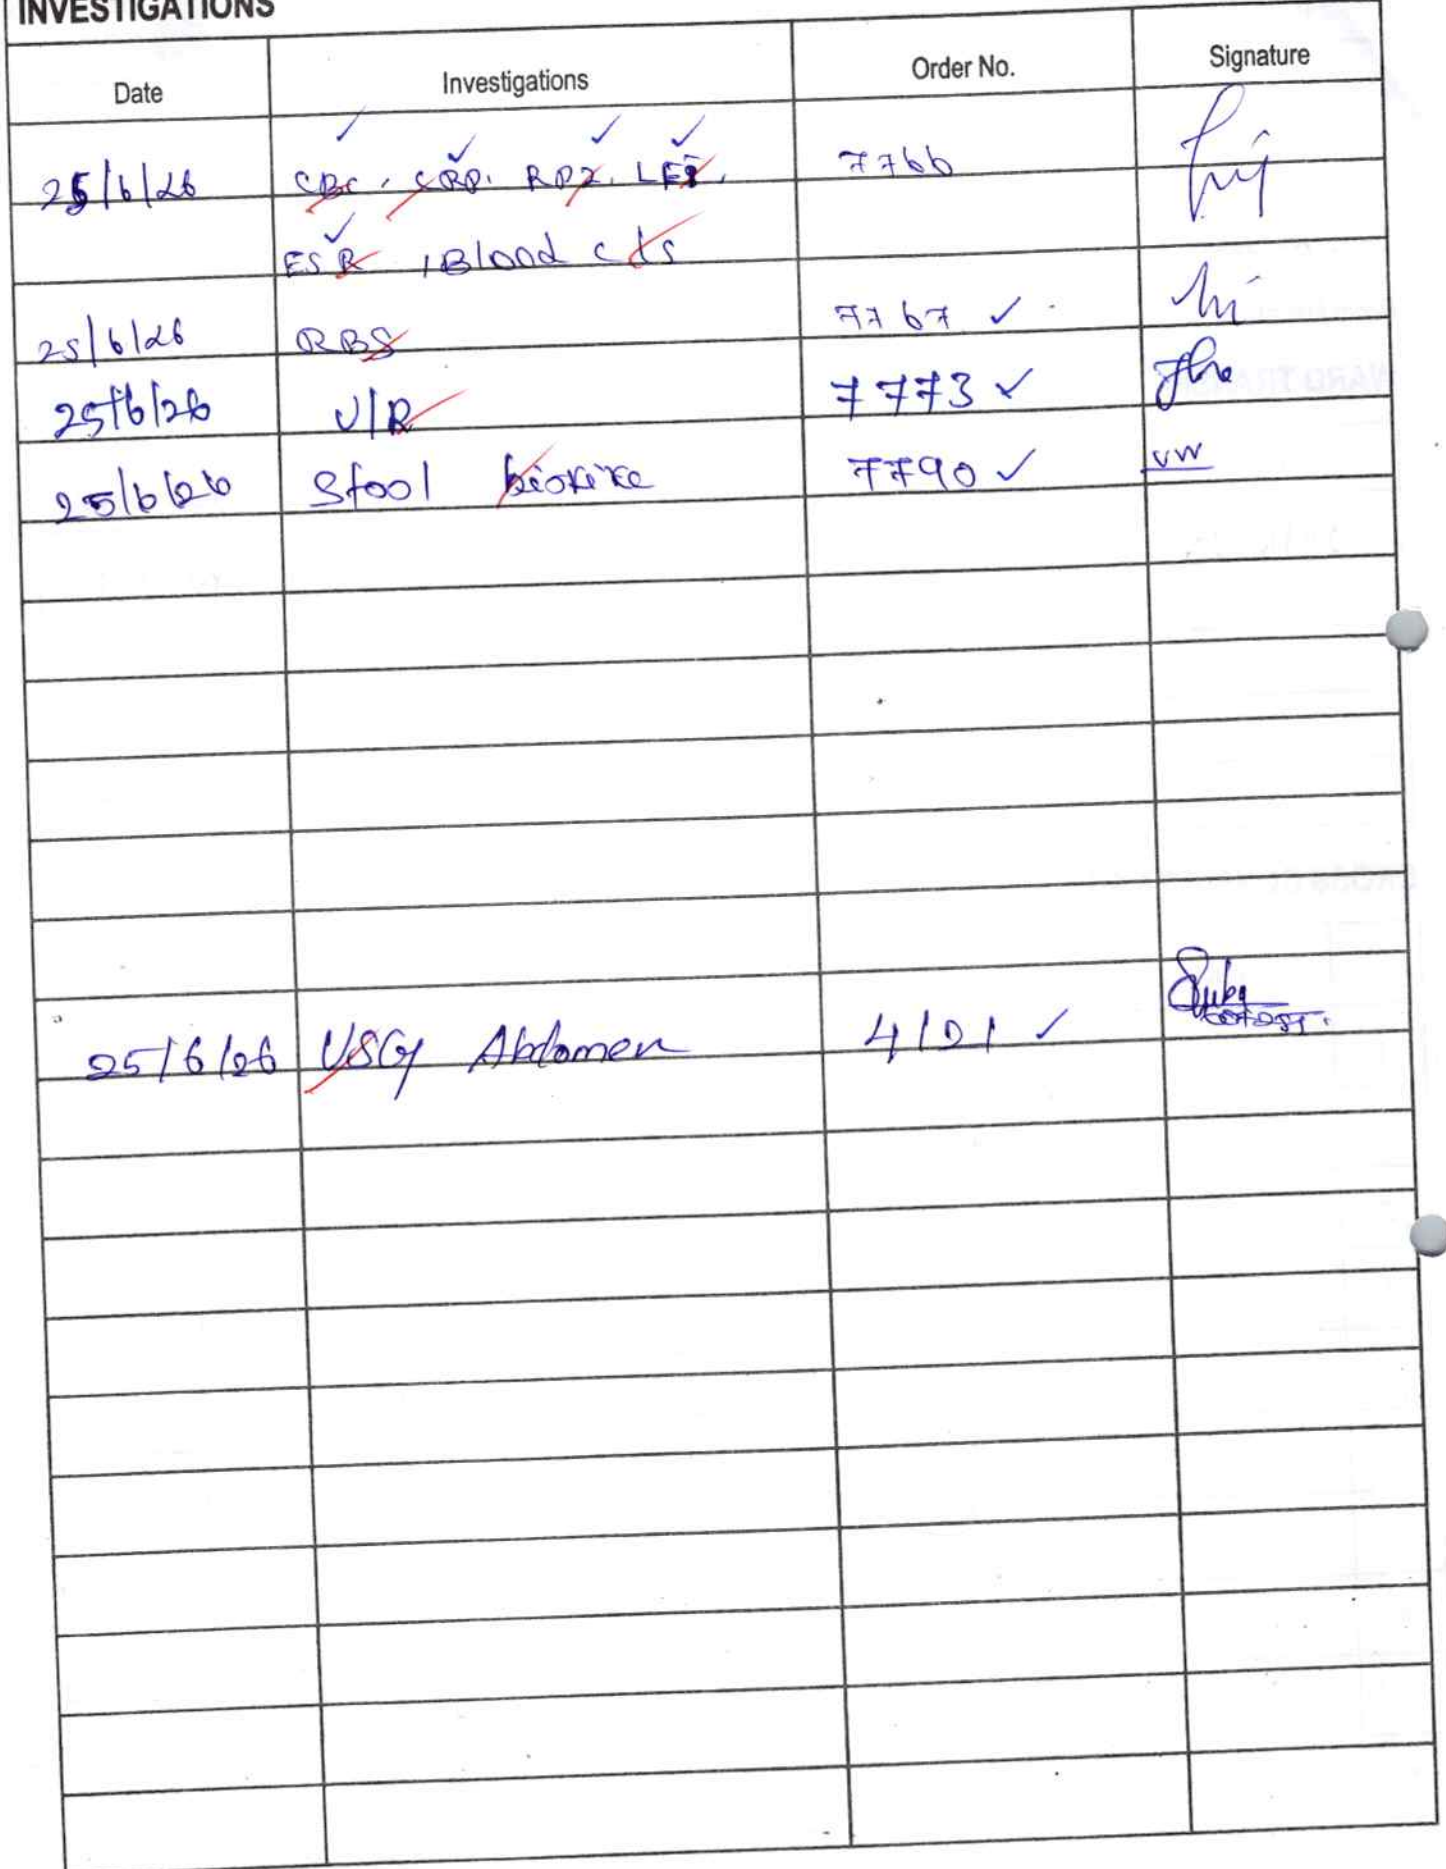 INVESTIGATIONS
Date Investigations Order No. Signature
25/6/26 CBC, CRP, RP2, LFT, 7766
ESR, Blood c/s
25/6/26 RBS 7767 ✓
25/6/26 U/R 7773 ✓
25/6/26 Stool 7790 ✓ VW
25/6/26 USG Abdomen 4121 ✓